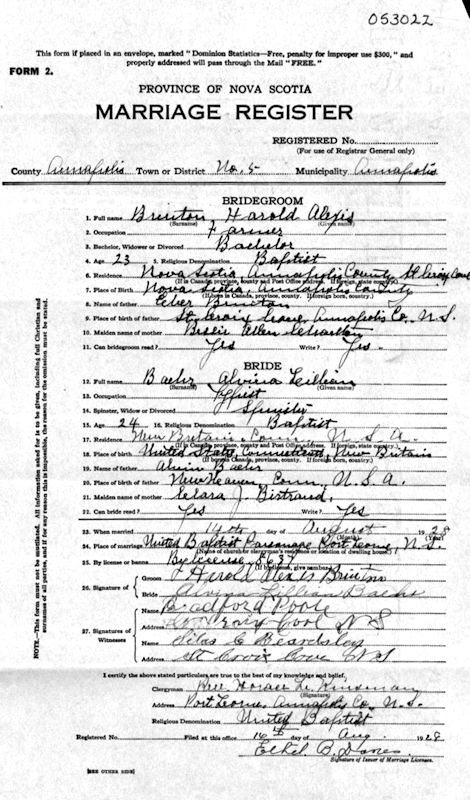 053022
This form if placed in an envelope, marked "Dominion Statistics—Free, penalty for improper use $300," and
properly addressed will pass through the Mail "FREE."
FORM 2.
PROVINCE OF NOVA SCOTIA
MARRIAGE REGISTER
REGISTERED No.
(For use of Registrar General only)
County Annapolis Town or District No. 5 Municipality Annapolis
BRIDEGROOM
1. Full name Brinton, Harold Alexis
(Surname) (Given name)
2. Occupation Farmer
3. Bachelor, Widower or Divorced Bachelor
4. Age 23 5. Religious Denomination Baptist
6. Residence Nova Scotia, Annapolis County St Croix Cove
(If in Canada, province, county and Post Office address. If foreign, state country.)
7. Place of Birth Nova Scotia, Annapolis County
(If born in Canada, province, county. If foreign born, country.)
8. Name of father Brinton
9. Place of birth of father St. Croix Cove, Annapolis Co., N.S.
10. Maiden name of mother Bessie Ellen
11. Can bridegroom read? Yes Write? Yes.
BRIDE
12. Full name Alvina Lillian
(Surname) (Given name)
13. Occupation Typist
14. Spinster, Widow or Divorced Spinster
15. Age 24 16. Religious Denomination Baptist
17. Residence New Britain, Conn., U.S.A.
(If in Canada, province, county and Post Office address. If foreign, state country.)
18. Place of birth United States, Connecticut, New Britain
(If born in Canada, province, county. If foreign born, country.)
19. Name of father Alvin
20. Place of birth of father New Haven, Conn., U.S.A.
21. Maiden name of mother Clara J. Bertrand,
22. Can bride read? Yes Write? Yes
23. When married 14th day of August 1928
(Month) (Year)
24. Place of marriage United Baptist Parsonage Port Lorne, N.S.
(Name of church or clergyman's residence or location of dwelling house.)
25. By license or banns By license, 8637
(If by license, give number.)
26. Signature of
Groom Harold Alexis Brinton
Bride Alvina Lillian
27. Signatures of Witnesses
Name Bradford Poole
Address St Croix Cove N S
Name Silas C Beardsley
Address St Croix Cove N S
I certify the above stated particulars are true to the best of my knowledge and belief.
Clergyman Rev. Horace L. Kinsman
(Signature)
Address Port Lorne, Annapolis Co., N.S.
Religious Denomination United Baptist
Registered No. Filed at this office 16th day of Aug. 1928
Ethel B.
Signature of Issuer of Marriage Licenses.
[SEE OTHER SIDE]
NOTE.—This form must not be mutilated. All information asked for is to be given, including full Christian and
surnames of all parties, and if for any reason this is impossible, the reason for the omission must be stated.